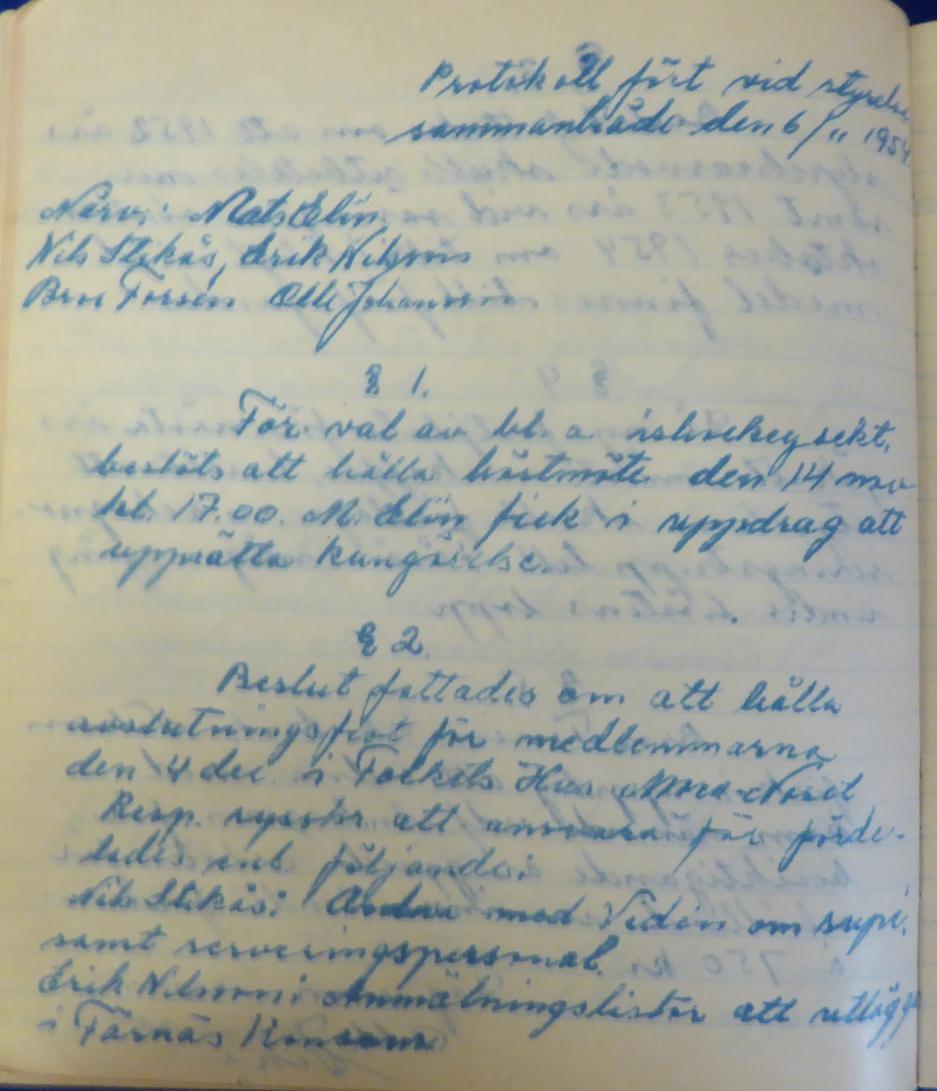 Protokoll fört vid styrelse
sammanträde den 6/11 1954
Närv.: Mats Elin,
Nils Stikås, Erik Nilsson
Bror Forsén Olle Johansson
§ 1.
För val av bl. a. ishockeysekt.
beslöts att hålla höstmöte den 14 nov
kl. 17.00. M. Elin fick i uppdrag att
upprätta kungörelse.
§ 2.
Beslut fattades om att hålla
avslutningsfest för medlemmarna
den 4 dec. i Folkets Hus Mora-Noret
Resp. sysslor att ansvara för förde-
lades enl. följande:
Nils Stikås: Ordna med Vidén om supé,
samt serveringspersonal.
Erik Nilsson: Anmälningslistor att utlägg
i Färnäs Konsum.